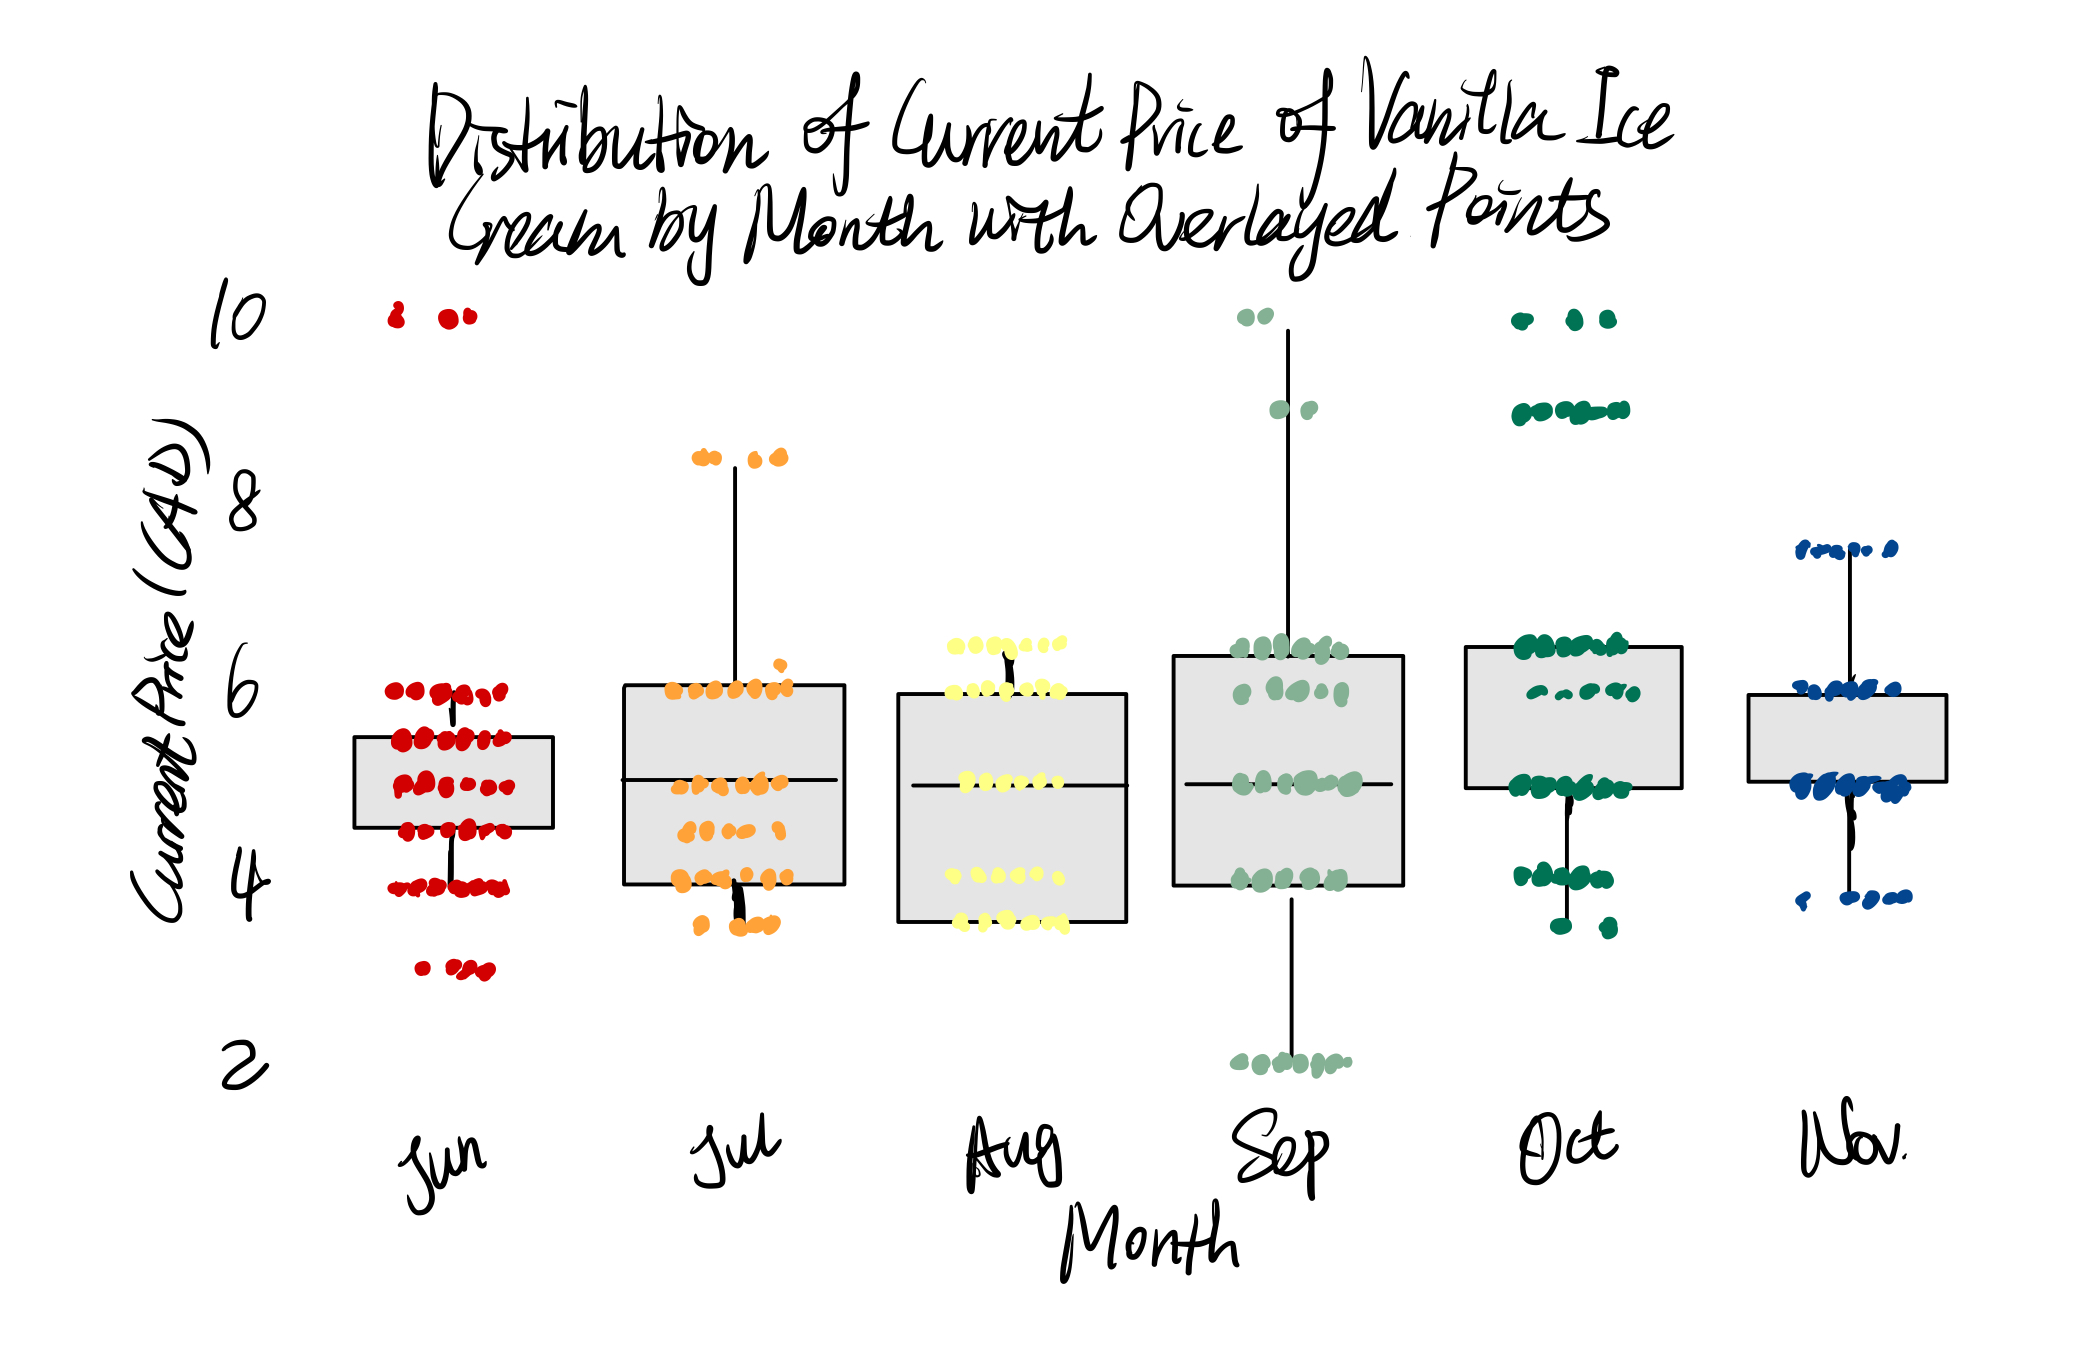 Distribution of Current Price of Vanilla Ice
Cream by Month with Overlayed Points
10
8
6
4
2
Current Price (CAD)
Jun
Jul
Aug
Sep
Oct
Nov.
Month